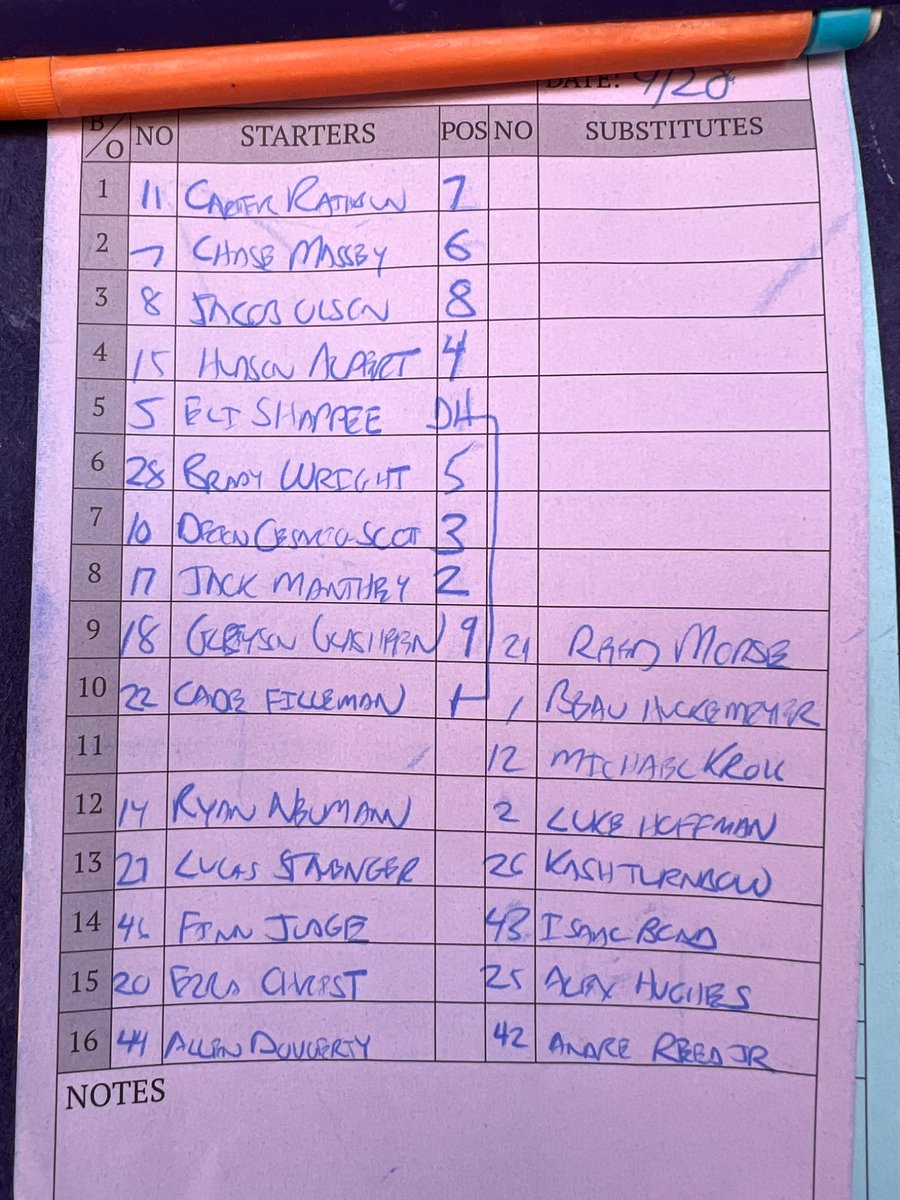 DATE: 9/20
B/O NO STARTERS POS NO SUBSTITUTES
1 11 CARTER 7
2 7 CHASE MASSEY 6
3 8 JACOB OLSON 8
4 15 HUDSON ALPERT 4
5 5 ELI SHAPPEE DH
6 28 BRADY WRIGHT 5
7 10 3
8 17 JACK MANTHEY 2
9 18 9 21 REED MORSE
10 22 CADE FILLEMAN 1 BEAU HUCKEMEYER
11 12 MICHAEL KROLL
12 14 RYAN NEUMANN 2 LUKE HOFFMAN
13 27 LUCAS STAENGER 26 KASH TURNBOW
14 46 FINN JUDGE 43 ISAAC
15 20 EZRA 25 ALEX HUGHES
16 44 ALLEN DOUGERTY 42 ANDRE REED JR
NOTES